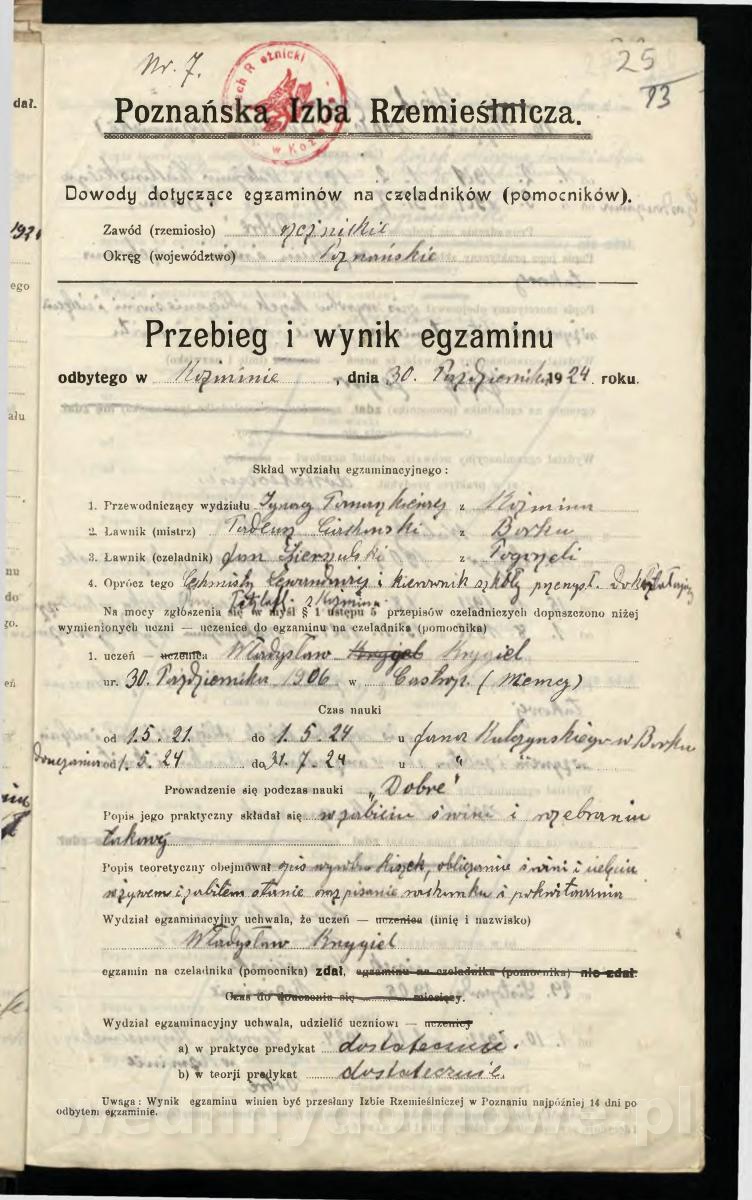 Nr. 7.
25
93
Cech Rzeźnicki w Koźminie
Poznańska Izba Rzemieślnicza.
Dowody dotyczące egzaminów na czeladników (pomocników).
Zawód (rzemiosło) rzeźnickie
Okręg (województwo) Poznańskie
Przebieg i wynik egzaminu
odbytego w Koźminie, dnia 30. Października 1924. roku.
Skład wydziału egzaminacyjnego:
1. Przewodniczący wydziału Ignacy Tomaszkiewicz z Koźmina
2. Ławnik (mistrz) Tadeusz z Borku
3. Ławnik (czeladnik) Jan z Pogorzeli
4. Oprócz tego Cechmistrz Lewandowski i kierownik szkoły przemysł. Dokształcającej
z Koźmina
Na mocy zgłoszenia się w myśl § 1 ustępu 5 przepisów czeladniczych dopuszczono niżej
wymienionych uczni — uczenice do egzaminu na czeladnika (pomocnika)
1. uczeń — uczenica Władysław Krygiel Krygiel
ur. 30. Października 1906 w Castrop. (Niemcy)
Czas nauki
od 1.5.21. do 1.5.24 u Jana Kulczynskiego w Borku
douczania od 1.5.24 do 31.7.24 u " "
Prowadzenie się podczas nauki „Dobre"
Popis jego praktyczny składał się w zabiciu świni i rozebraniu
takowej
Popis teoretyczny obejmował opis wyrobu kiszek, obliczanie świni i cielęcia
w żywem i zabitem stanie oraz pisanie rachunku i pokwitowania
Wydział egzaminacyjny uchwala, że uczeń — uczenica (imię i nazwisko)
Władysław Krygiel
egzamin na czeladnika (pomocnika) zdał, egzaminu na czeladnika (pomocnika) nie zdał.
Czas do douczenia się miesięcy.
Wydział egzaminacyjny uchwala, udzielić uczniowi — uczenicy
a) w praktyce predykat dostatecznie.
b) w teorji predykat dostatecznie.
Uwaga: Wynik egzaminu winien być przesłany Izbie Rzemieślniczej w Poznaniu najpóźniej 14 dni po
odbytem egzaminie.